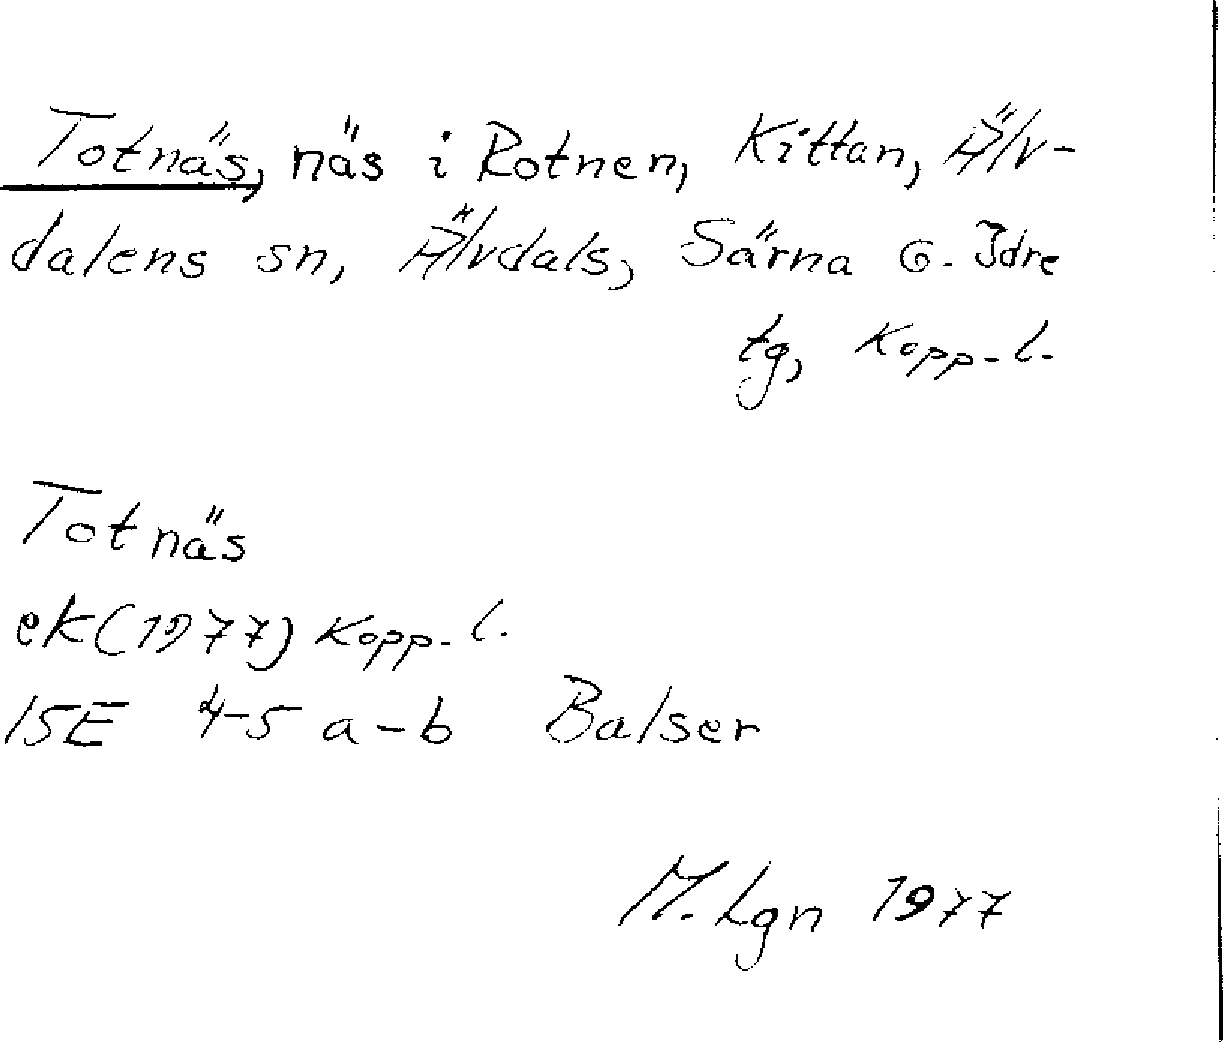 Totnäs, näs i Rotnen, Kittan, Älv-
dalens sn, Älvdals, Särna o. Idre
tg, Kopp-l.
Totnäs
ek(1977) Kopp-l.
15E 4-5 a-b Balser
M. Lgn 1977